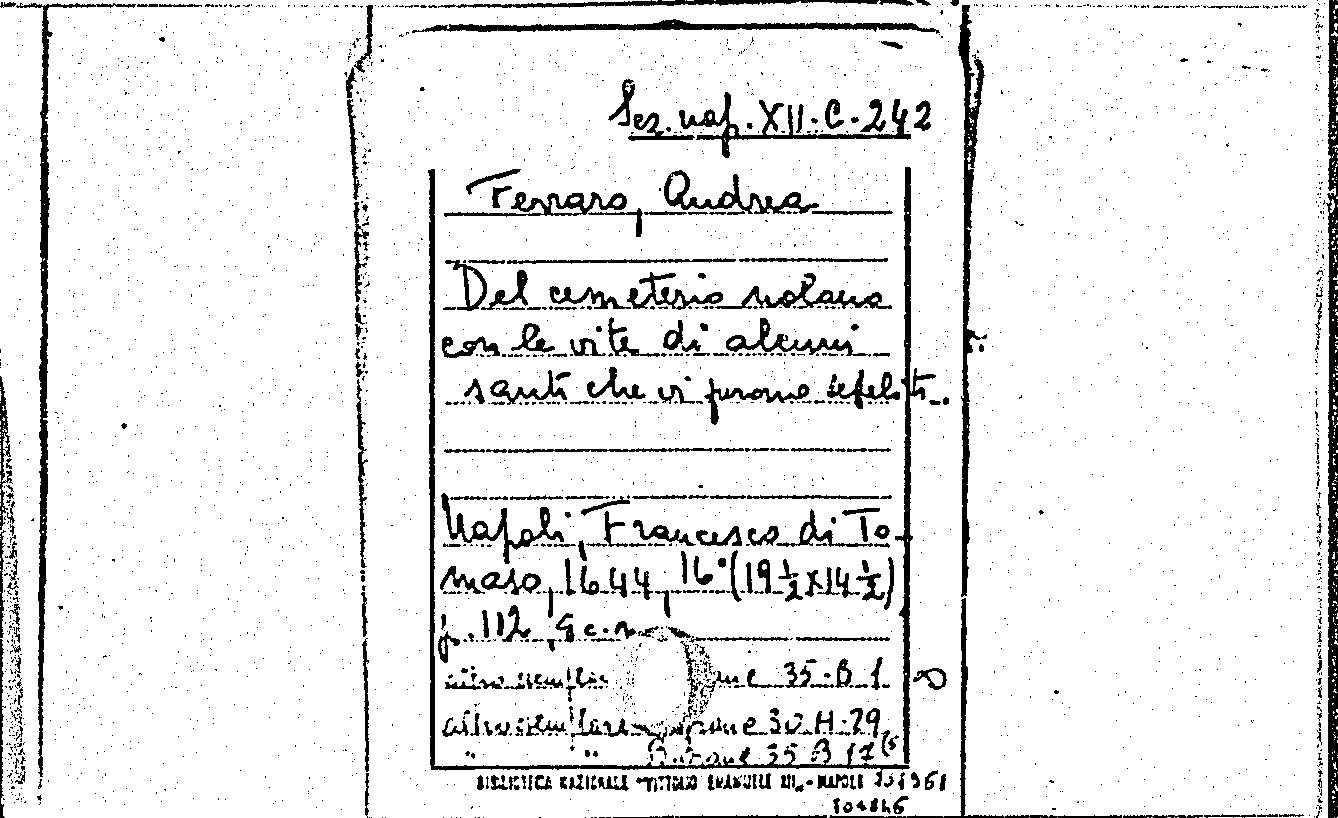 Sez. nap. XII. C. 242
Ferraro, Andrea
Del cemeterio nolano
con le vite di alcuni
santi che vi furono sepeliti.
Napoli, Francesco di To-
maso, 1644, 16° (19 ½ x 14 ½)
p. 112, 8 c. n
altro esemplare 35. B 1
altro esemplare 30. H. 29
" " 35 B 17
BIBLIOTECA NAZIONALE "VITTORIO EMANUELE III" - NAPOLI